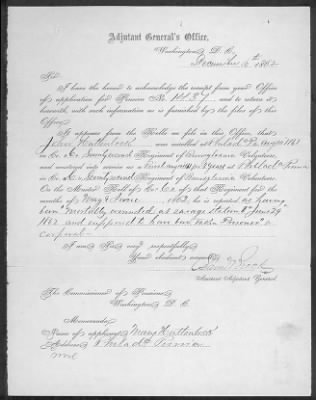 Adjutant General's Office,
Washington, D. C.
December 6th 1862
Sir:
I have the honor to acknowledge the receipt from your Office
of application for Pension No. and to return it
herewith with such information as is furnished by the files of this
Office.
It appears from the Rolls on file in this Office, that
John was enrolled at Philad Pa 1861
in Co. Regiment of Pennsylvania Volunteers,
and mustered into service as a 1861 3 years at Philada Penna
in Co. Regiment of Pennsylvania Volunteers.
On the Muster Roll of Co. of that Regiment for the
months of May & June 1862, he is reported as having
been "mortally wounded at Savage Station June 29
1862 and supposed to have been taken Prisoner" a
corporal
I am, Sir, very respectfully,
Your obedient servant,
Assistant Adjutant General
The Commissioner of Pensions
Washington, D. C.
Memoranda:
Name of applicant, Mary
Address, Philada Penna